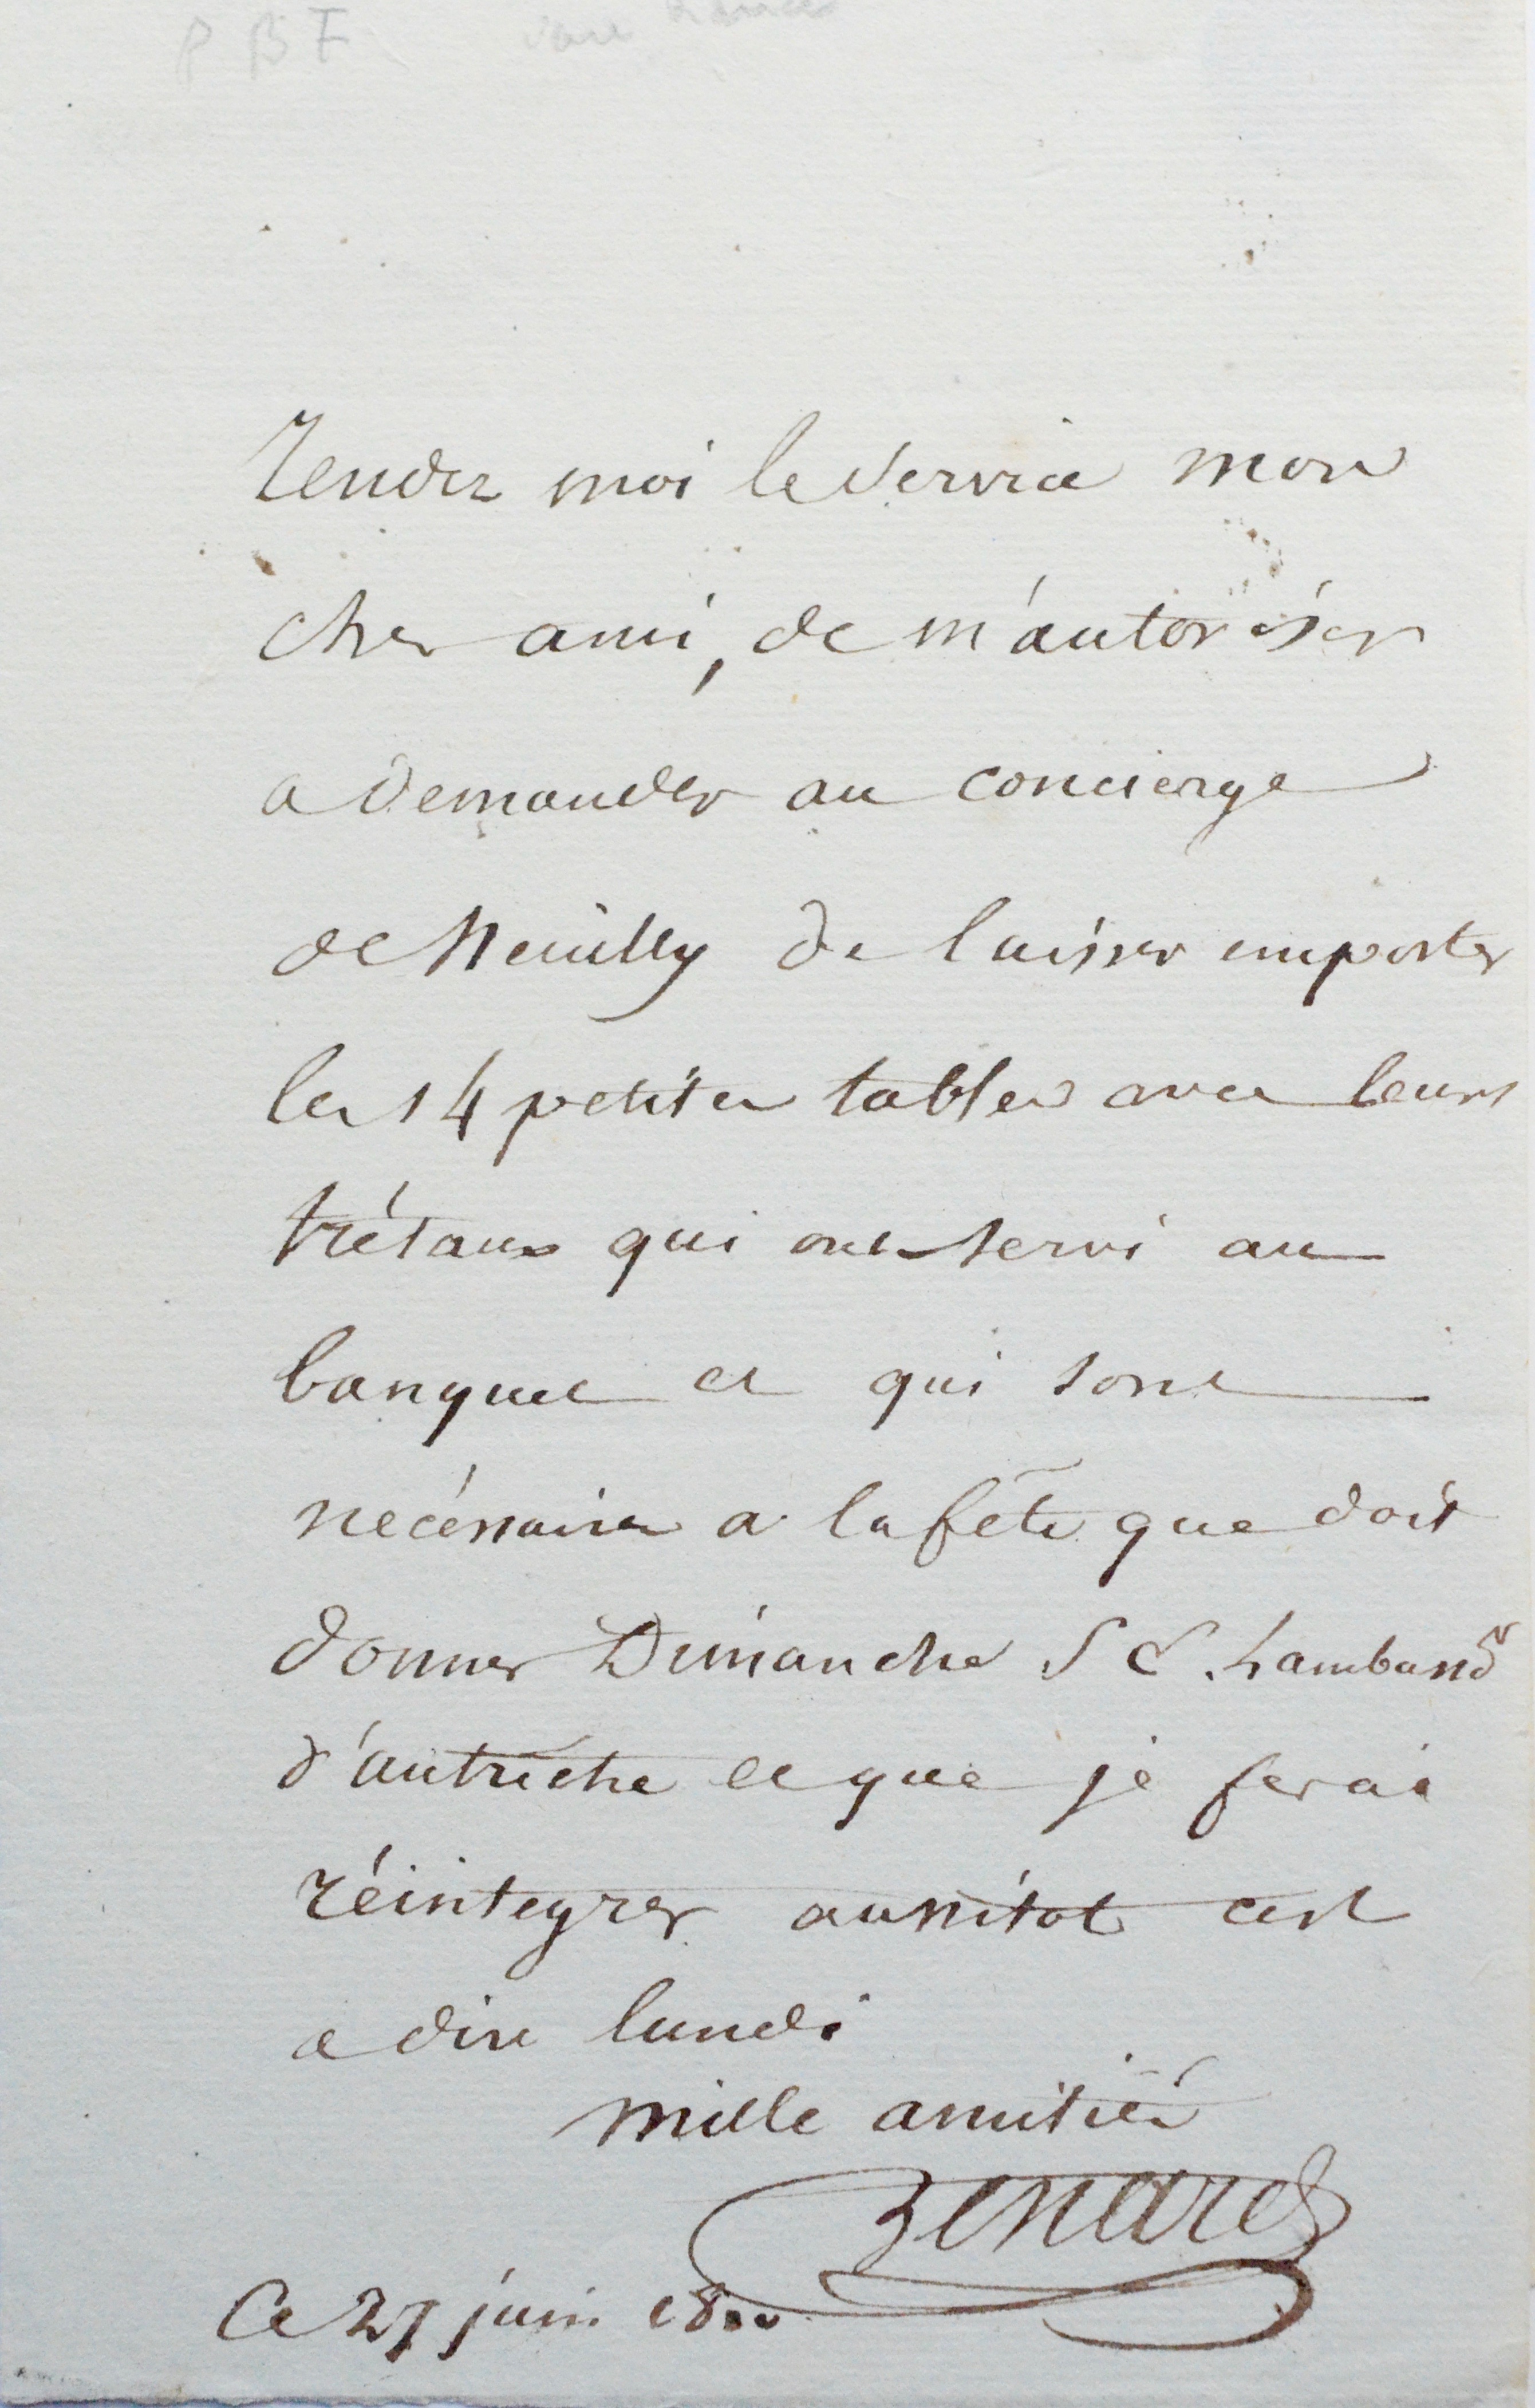 P B F
rendez moi le service mon
cher ami, de m'autoriser
a demander au concierge
de Neuilly de laisser emporter
les 14 petites tables avec leurs
trétaux qui ont servi au
banquet et qui sont
necéssaires a la fête que doit
donner Dimanche S E. L'ambassdr
d'autriche et que je ferai
réintegrer aussitot cest
a dire lundi
mille amitiés
Benard
Ce 27 juin